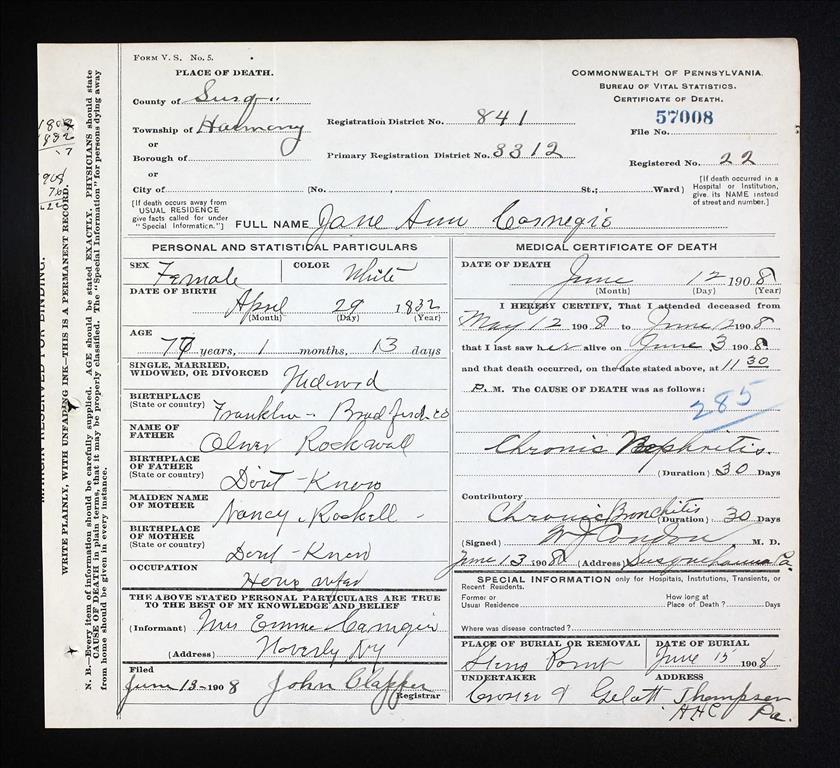 FORM V. S. No. 5.
PLACE OF DEATH.
County of Susq
Township of Harmony
or
Borough of
or
City of (No. St.; Ward)
[If death occurs away from USUAL RESIDENCE give facts called for under "Special Information."]
Registration District No. 841
Primary Registration District No. 3312
COMMONWEALTH OF PENNSYLVANIA.
BUREAU OF VITAL STATISTICS.
CERTIFICATE OF DEATH.
57008
File No.
Registered No. 22
[If death occurred in a Hospital or Institution, give its NAME instead of street and number.]
FULL NAME Jane Ann Carnegie
PERSONAL AND STATISTICAL PARTICULARS
SEX Female
COLOR White
DATE OF BIRTH
April 29 1832
(Month) (Day) (Year)
AGE
76 years, 1 months, 13 days
SINGLE, MARRIED, WIDOWED, OR DIVORCED Widowed
BIRTHPLACE (State or country) Franklin - Bradford co
NAME OF FATHER Oliver Rockwell
BIRTHPLACE OF FATHER (State or country) Dont - Know
MAIDEN NAME OF MOTHER Nancy Rockell
BIRTHPLACE OF MOTHER (State or country) Dont - Know
OCCUPATION House wife
THE ABOVE STATED PERSONAL PARTICULARS ARE TRUE TO THE BEST OF MY KNOWLEDGE AND BELIEF
(Informant) Mrs Emma Carnegie
(Address) Waverly NY
Filed
June 13 - 1908 John Clapper
Registrar
MEDICAL CERTIFICATE OF DEATH
DATE OF DEATH
June 12 1908
(Month) (Day) (Year)
I HEREBY CERTIFY, That I attended deceased from
May 12 1908 to June 12 1908
that I last saw her alive on June 3 1908
and that death occurred, on the date stated above, at 11 30
P. M. The CAUSE OF DEATH was as follows:
285
Chronic Nephritis.
(Duration) 30 Days
Contributory
Chronic Bronchitis (Duration) 30 Days
(Signed) W J Condon M. D.
June 13 1908 (Address) Susquehanna Pa.
SPECIAL INFORMATION only for Hospitals, Institutions, Transients, or Recent Residents.
Former or Usual Residence
How long at Place of Death? Days
Where was disease contracted?
PLACE OF BURIAL OR REMOVAL
DATE OF BURIAL
June 15 1908
UNDERTAKER
ADDRESS
Gelatt Thompson
AHC Pa.
WRITE PLAINLY, WITH UNFADING INK—THIS IS A PERMANENT RECORD.
N. B.—Every item of information should be carefully supplied. AGE should be stated EXACTLY. PHYSICIANS should state
CAUSE OF DEATH in plain terms, that it may be properly classified. The "Special Information" for persons dying away
from home should be given in every instance.